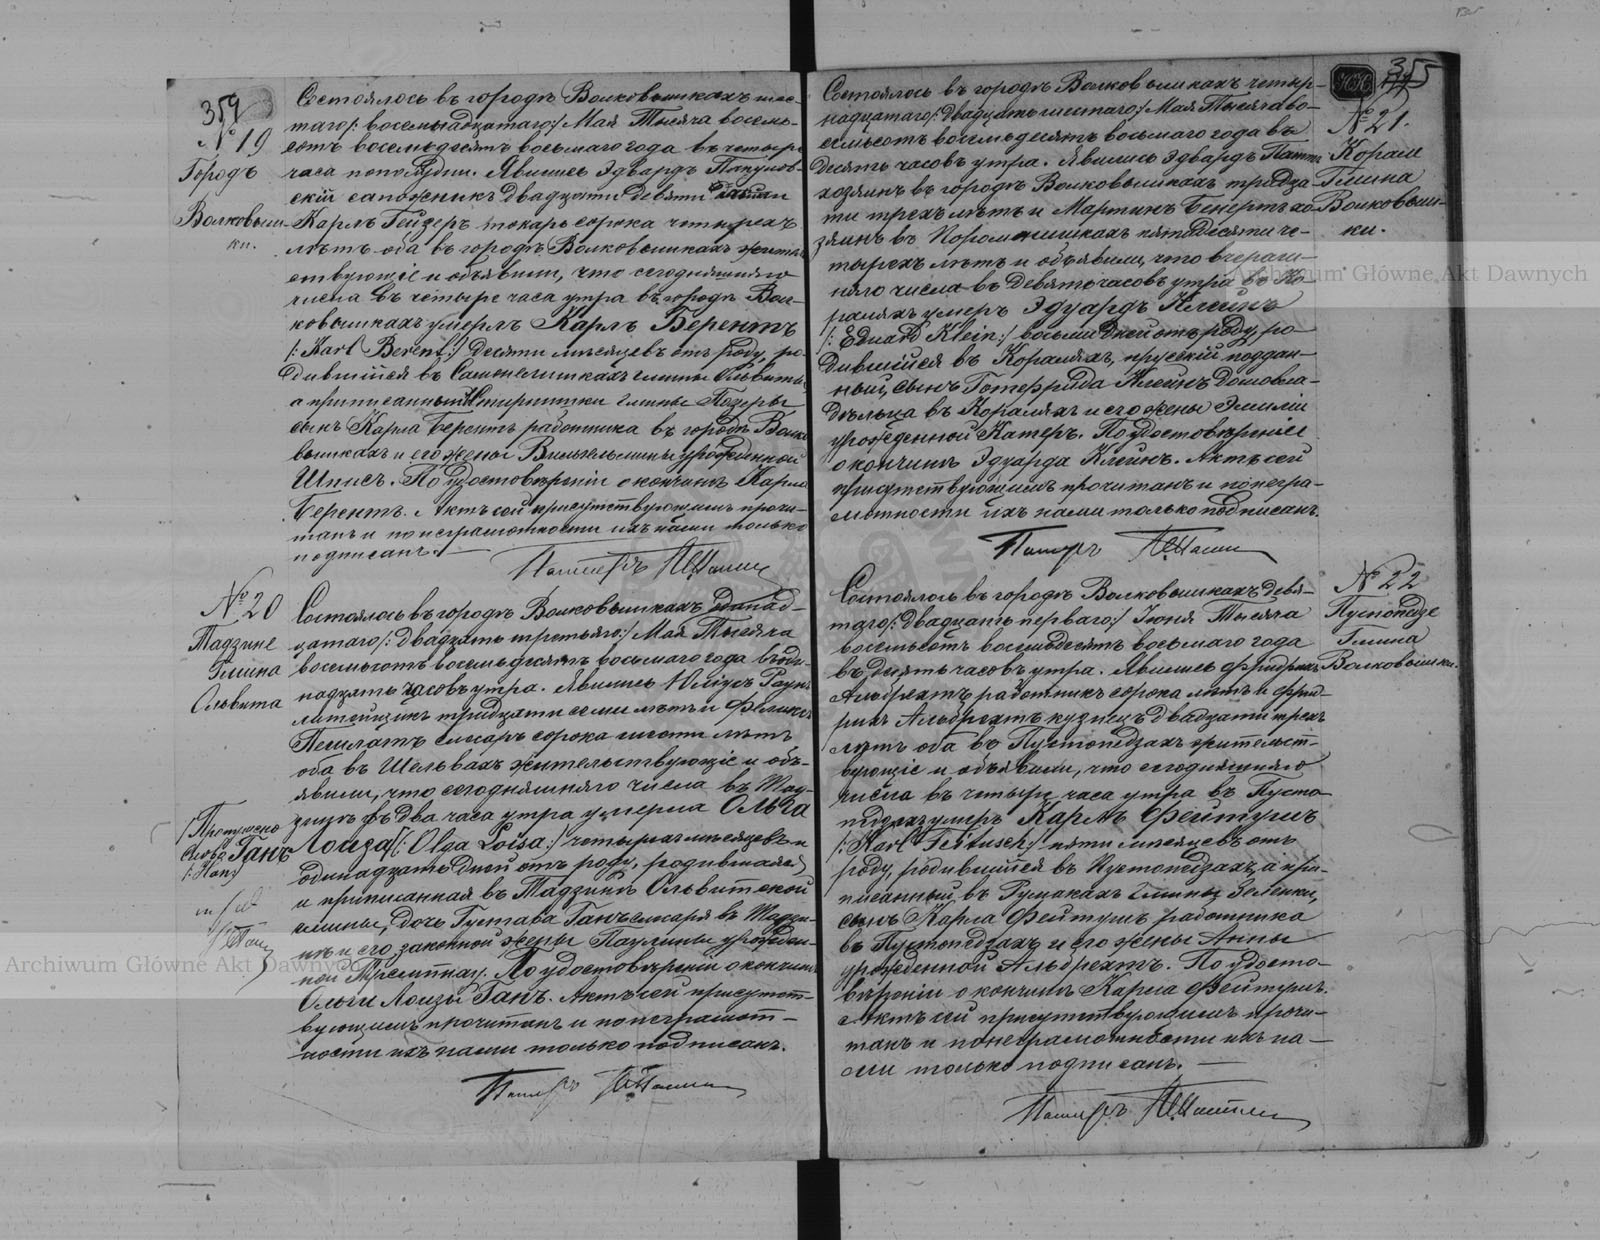 354
№ 19
Городъ
Волковыш-
ки.
Состоялось въ городѣ Волковышкахъ шес-
таго /: восемнадцатаго:/ Мая Тысяча восемь-
сотъ восемьдесятъ восьмаго года въ четыре
часа пополудни. Явились Эдвардъ
скій сапожникъ двадцати девяти
Карлъ Гейзеръ токарь сорока четырехъ
лѣтъ оба въ городѣ Волковышкахъ жительс-
ствующіе и объявили, что сегодняшняго
числа въ четыре часа утра въ городѣ Вол-
ковышкахъ умерлъ Карлъ Берентъ
/: Karl Berent :/ десяти мѣсяцевъ отъ роду, ро-
дившійся въ гмины Ольвита,
а приписанный гмины
сынъ Карла Берентъ работника въ городѣ Волко-
вышкахъ и его жены Вильгельмины урожденной
Шписъ. По удостовѣреніи о кончинѣ Карла
Берентъ. Актъ сей присутствующимъ прочи-
танъ и по неграмотности ихъ нами только
подписанъ.
№ 20
Тадзине
Гмина
Ольвита
Состоялось въ городѣ Волковышкахъ одинад-
цатаго /: двадцать третьяго:/ Мая Тысяча
восемьсотъ восемьдесятъ восьмаго года въ оди-
надцать часовъ утра. Явились Юліусъ
литейщикъ тридцати семи лѣтъ и
слесарь сорока шести лѣтъ
оба въ Шельвахъ жительствующіе и объ-
явили, что сегодняшняго числа въ Тад-
зинѣ въ два часа утра умерла Ольга
Лоиза /: Olga Loisa :/ четырехъ мѣсяцевъ и
одинадцать дней отъ роду, родившаяся
и приписанная въ Тадзинѣ Ольвитской
гмины, дочь Густава Ганъ слесаря въ Тадзи-
нѣ и его законной жены Паулины урожден-
ной По удостовѣреніи о кончинѣ
Ольги Лоизы Ганъ. Актъ сей присутст-
вующимъ прочитанъ и по неграмот-
ности ихъ нами только подписанъ.
/ Пропущено
слово Ганъ
355
№ 21.
Корале
Гмина
Волковыш-
ки.
Состоялось въ городѣ Волковышкахъ четыр-
надцатаго /: двадцать шестаго:/ Мая Тысяча во-
семьсотъ восемьдесятъ восьмаго года въ
десять часовъ утра. Явились Эдвардъ
хозяинъ въ городѣ Волковышкахъ тридца-
ти трехъ лѣтъ и Мартинъ хо-
зяинъ въ пятидесяти че-
тырехъ лѣтъ и объявили, что вчераш-
няго числа въ девять часовъ утра въ Ко-
раляхъ умеръ Эдуардъ Клейнъ
/: Eduard Klein :/ восьми дней отъ роду, ро-
дившійся въ Кораляхъ, прусскій поддан-
ный, сынъ Готфрида Клейнъ домовла-
дѣльца въ Кораляхъ и его жены Эмиліи
урожденной Катеръ. По удостовѣреніи
о кончинѣ Эдуарда Клейнъ. Актъ сей
присутствующимъ прочитанъ и по негра-
мотности ихъ нами только подписанъ.
№ 22
Пустопедзе
Гмина
Волковышки.
Состоялось въ городѣ Волковышкахъ девя-
таго /: двадцать перваго:/ Іюня Тысяча
восемьсотъ восемьдесятъ восьмаго года
въ десять часовъ утра. Явились Фридрихъ
Альбрехтъ работникъ сорока лѣтъ и Фрид-
рихъ Альбрехтъ кузнецъ двадцати трехъ
лѣтъ оба въ Пустопедзахъ жительст-
вующіе и объявили, что сегодняшняго
числа въ четыре часа утра въ Пусто-
педзахъ умеръ Карлъ Фейтушъ
/: Karl Feitusch :/ пяти мѣсяцевъ отъ
роду, родившійся въ Пустопедзахъ, а при-
писанный въ Румакахъ гмины Зеленки,
сынъ Карла Фейтушъ работника
въ Пустопедзахъ и его жены Анны
урожденной Альбрехтъ. По удосто-
вѣреніи о кончинѣ Карла Фейтушъ.
Актъ сей присутствующимъ прочи-
танъ и по неграмотности ихъ на-
ми только подписанъ.
Archiwum Główne Akt Dawnych
Archiwum Główne Akt Dawnych